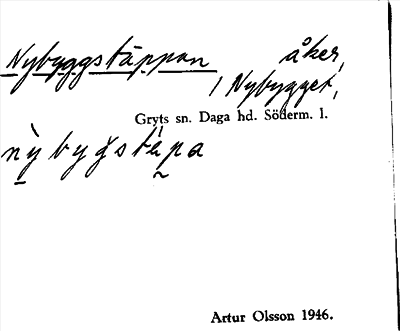 Nybyggstäppan åker,
/ Nybygget,
Gryts sn. Daga hd. Söderm. l.
nỳbyǧstápa
Artur Olsson 1946.